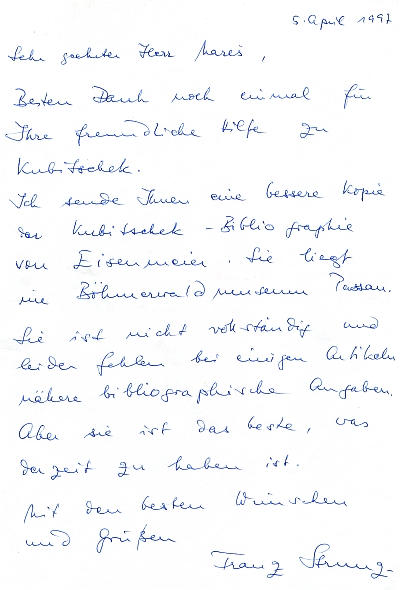 5. April 1997
Sehr geehrter Herr Mareš,
Besten Dank noch einmal für
Ihre freundliche Hilfe zu
Kubitschek.
Ich sende Ihnen eine bessere Kopie
der Kubitschek-Bibliographie
von Eisenmeier. Sie liegt
im Böhmerwaldmuseum Passau.
Sie ist nicht vollständig und
leider fehlen bei einigen Artikeln
nähere bibliographische Angaben.
Aber sie ist das beste, was
derzeit zu haben ist.
Mit den besten Wünschen
und Grüßen
Franz